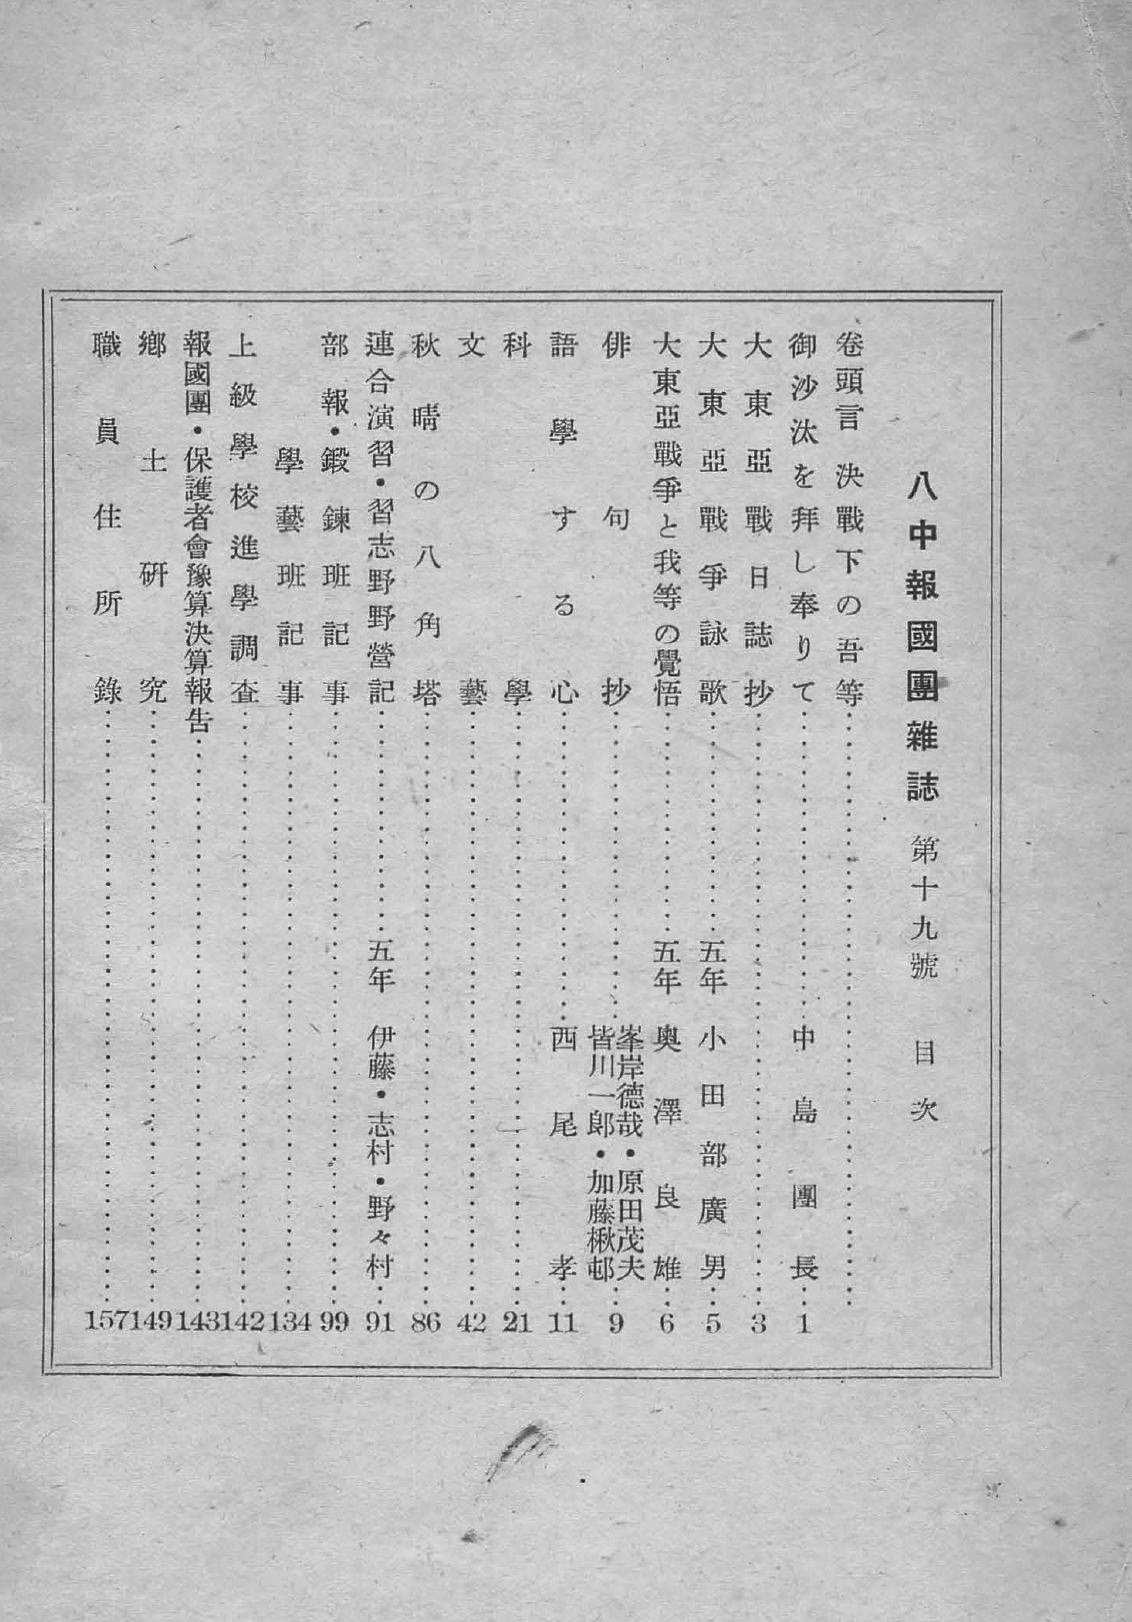 八中報國團雜誌 第十九號 目次
卷頭言 決戰下の吾等
御沙汰を拜し奉りて 中島團長 1
大東亞戰日誌抄 3
大東亞戰爭詠歌 五年 小田部廣男 5
大東亞戰爭と我等の覺悟 五年 奧澤良雄 6
俳句抄 峯岸德哉・原田茂夫 皆川一郞・加藤楸邨 9
語學する心 西尾孝 11
科學 21
文藝 42
秋晴の八角塔 86
連合演習・習志野野營記 五年 伊藤・志村・野々村 91
部報・鍛鍊班記事 99
學藝班記事 134
上級學校進學調査 142
報國團・保護者會豫算決算報告 143
鄕土硏究 149
職員住所錄 157